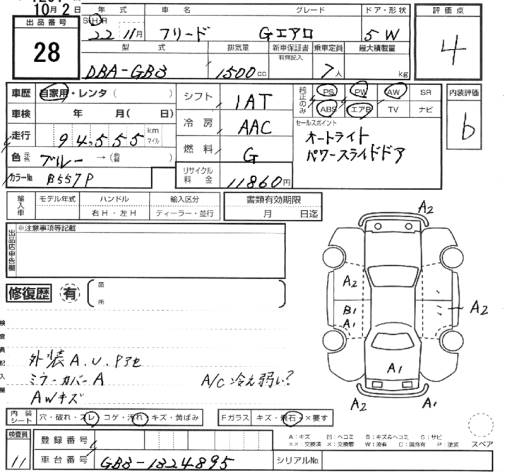 10月2
出品番号
28
年式 車名 グレード ドア・形状
S・H・R 22 11月 フリード Gエアロ 5W
型式 排気量 新車保証書 乗車定員 最大積載量
DBA-GB3 1500cc 7人 kg
評価点
4
車歴 自家用・レンタ( )
シフト 1AT
PS PW AW SR
ABS エアB TV ナビ
内装評価
b
車検 年 月( 日)
冷房 AAC
セールスポイント
オートライト
パワースライドドア
走行 94,555 km マイル
燃料 G
色 ブルー →( )
カラーNo B557P
リサイクル料金 11860円
輸入車 モデル年式 ハンドル 輸入区分
右H・左H ディーラー・並行
書類有効期限
月 日迄
※注意事項等記載
修復歴 有
A2
A2
B1
A1
A2
A1
A2 A2
外装A.U.Pアセ
ミラーカバーA
AWキズ
A/C 冷え弱い?
内装シート 穴・破れ・スレ・コゲ・汚れ・キズ・黄ばみ
Fガラス キズ・飛石・×要す
A:キズ
スペア
検査員 11
登録番号
車台番号 GB3-1324895
シリアルNo